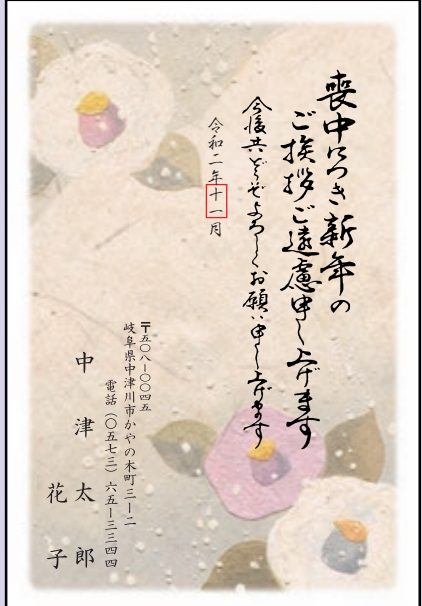 喪中につき新年の
ご挨拶ご遠慮申し上げます
今後共どうぞよろしくお願い申し上げます
令和二年十一月
〒五〇八ー〇〇四五
岐阜県中津川市かやの木町三ー二
電話（〇五七三）六五ー三三四四
中津太郎
花子